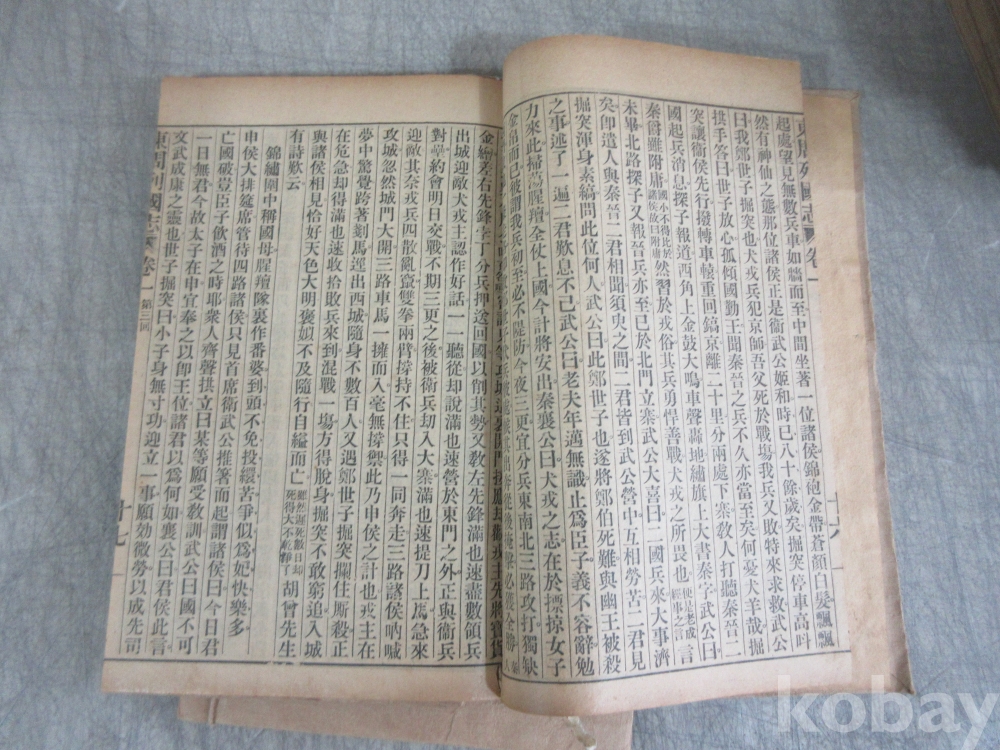 東周列國志 卷一
起處望見無數兵車如牆而至中間坐著一位諸侯錦袍金帶蒼顏白髮飄飄
然有神仙之態那位諸侯正是衛武公姬和時已八十餘歲矣掘突停車高呌
曰我鄭世子掘突也犬戎兵犯京師吾父死於戰場我兵又敗特來求救武公
拱手答曰世子放心孤傾國勤王聞秦晉之兵不久亦當至矣何憂犬羊哉掘
突讓衛侯先行撥轉車轅重回鎬京離二十里分兩處下寨敎人打聽秦晉二
國起兵消息探子報道西角上金鼓大鳴車聲轟地繡旗上大書秦字武公曰
秦爵雖附庸國小不得比於諸侯故曰附庸然習於戎俗其兵勇悍善戰犬戎之所畏也便是老成經事之言言
未畢北路探子又報晉兵亦至已於北門立寨武公大喜曰二國兵來大事濟
矣卽遣人與秦晉二君相聞須臾之間二君皆到武公營中互相勞苦二君見
掘突渾身素縞問此位何人武公曰此鄭世子也遂將鄭伯死難與幽王被殺
之事述了一遍二君歎息不已武公曰老夫年邁無識止爲臣子義不容辭勉
力來此掃蕩腥羶全仗上國今計將安出秦襄公曰犬戎之志在於摽掠女子
金帛而已彼謂我兵初至必不隄防今夜三更宜分兵東南北三路攻打獨缺
金繒差右先鋒孛丁分兵押送回國以削其勢又敎左先鋒滿也速盡數領兵
出城迎敵犬戎主認作好話一一聽從却說滿也速營於東門之外正與衛兵
對壘約會明日交戰不期三更之後被衛兵刧入大寨滿也速提刀上馬急來
迎敵其奈戎兵四散亂竄雙拳兩臂撐持不住只得一同奔走三路諸侯吶喊
攻城忽然城門大開三路車馬一擁而入毫無撐禦此乃申侯之計也戎主在
夢中驚覺跨著剗馬逕出西城隨身不數百人又遇鄭世子掘突攔住厮殺正
在危急却得滿也速收拾敗兵來到混戰一場方得脫身掘突不敢窮追入城
與諸侯相見恰好天色大明褒姒不及隨行自縊而亡雖然遲死數日却死得大不乾淨了胡曾先生
有詩歎云
錦繡圍中稱國母腥羶隊裏作番婆到頭不免投繯苦爭似爲妃快樂多
申侯大排筵席管待四路諸侯只見首席衛武公推箸而起謂諸侯曰今日君
亡國破豈臣子飲酒之時耶衆人齊聲拱立曰某等願受敎訓武公曰國不可
一日無君今故太子在申宜奉之以卽王位諸君以爲何如襄公曰君侯此言
文武成康之靈也世子掘突曰小子身無寸功迎立一事願効微勞以成先司
東周列國志 卷一 第三回 十七
kobay